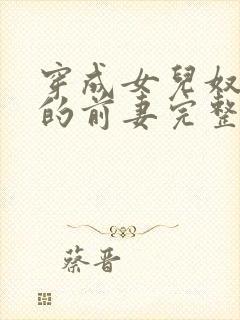 穿成女兒奴
的前妻完整
蔡晋